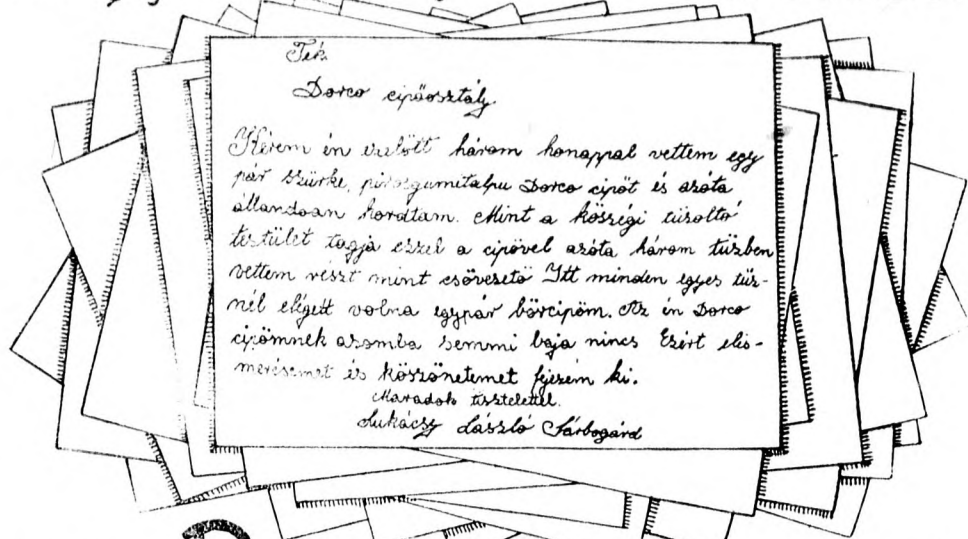 Tek.
Dorco cipőosztály
Kérem én ezelőtt három honappal vettem egy
pár szürke, pirosgumitalpu Dorco cipőt és azóta
állandoan hordtam. Mint a községi tüzoltó
testület tagja ezzel a cipővel azóta három tüzben
vettem részt mint csővezető Itt minden egyes tüz-
nél elégett volna egypár bőrcipöm. Az én Dorco
cipömnek azomba semmi baja nincs Ezért elis-
merésemet és köszönetemet fejezem ki.
Maradok tisztelettel.
Lukácsy László Sárbogárd